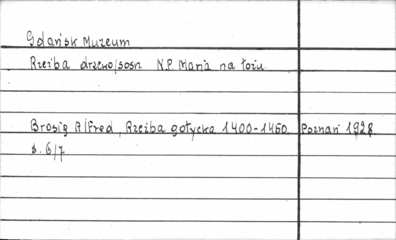 Gdańsk Muzeum
Rzeźba drzewo/sosn N.P. Maria na łożu
Brosig Alfred, Rzeźba gotycka 1400-1450 Poznań 1928
s. 6/7